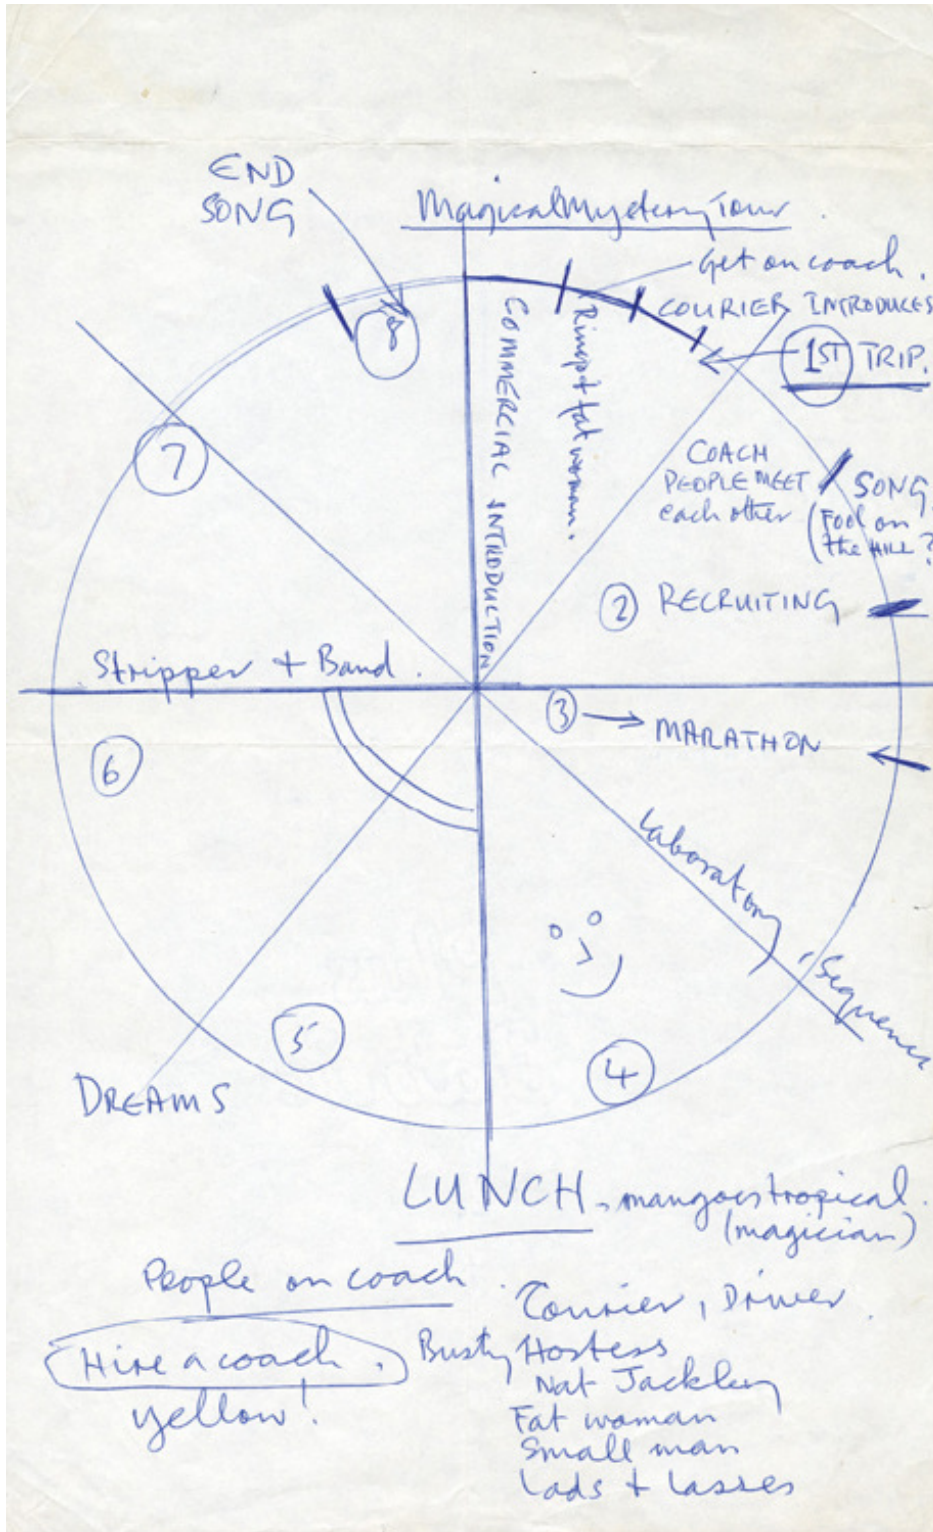 END
SONG
Magical Mystery Tour.
Get on coach.
COURIER INTRODUCES
1ST TRIP.
8
COMMERCIAL INTRODUCTION
Ringo + fat woman.
7
COACH
PEOPLE MEET
each other
SONG
(Fool on
the HILL?
2 RECRUITING
Stripper + Band.
3 → MARATHON
6
Laboratory, Sequence
5
4
DREAMS
LUNCH - mangoes tropical.
(magician)
People on coach.
Courier, Driver.
Hire a coach.
Busty Hostess
yellow!
Nat Jackley
Fat woman
Small man
Lads + Lasses